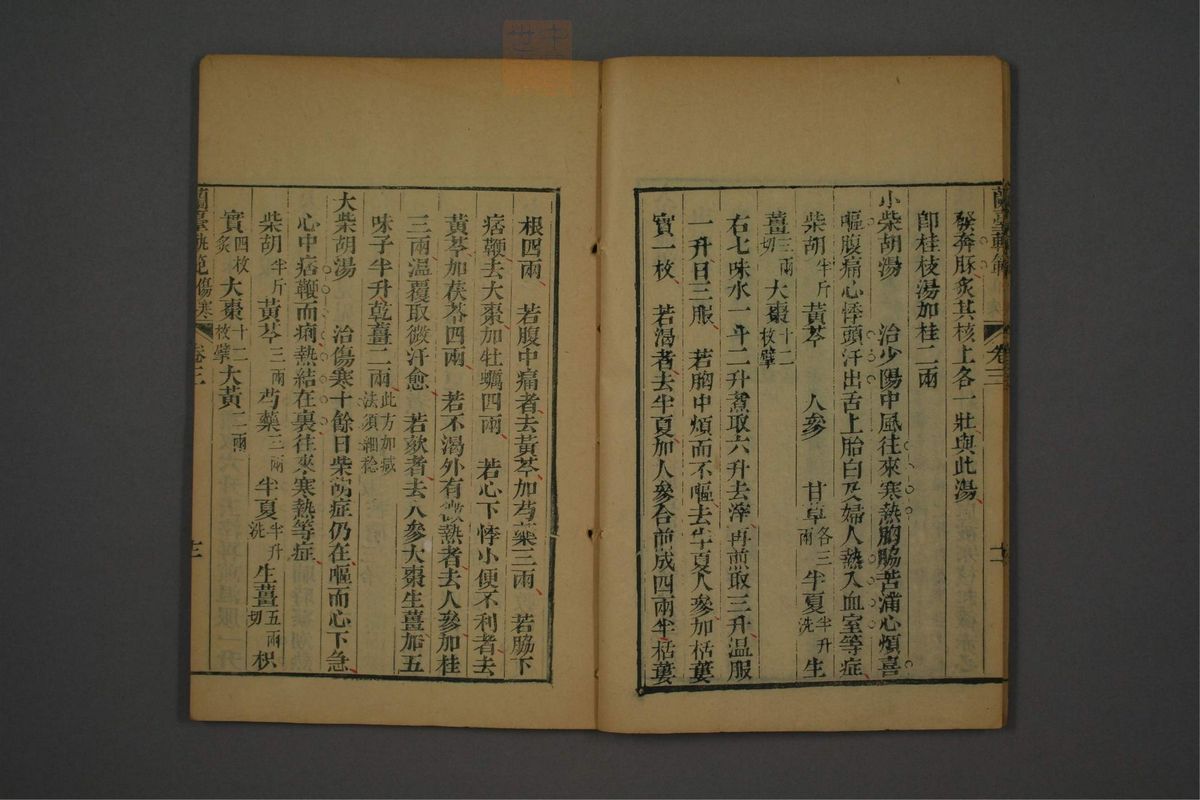 蘭臺軌範
卷三
發奔豚炙其核上各一壯與此湯
卽桂枝湯加桂二兩
小柴胡湯　治少陽中風往來寒熱胸脇苦滿心煩喜
嘔腹痛心悸頭汗出舌上胎白及婦人熱入血室等症
柴胡半斤　黃芩　人參　甘草各三兩　半夏半升洗　生
薑三兩切　大棗十二枚擘
右七味水一斗二升煮取六升去滓再煎取三升温服
一升日三服　若胸中煩而不嘔去半夏人參加栝蔞
實一枚　若渴者去半夏加人參合前成四兩半栝蔞
根四兩　若腹中痛者去黃芩加芍藥三兩　若脇下
痞鞕去大棗加牡蠣四兩　若心下悸小便不利者去
黃芩加茯苓四兩　若不渴外有微熱者去人參加桂
三兩温覆取微汗愈　若欬者去人參大棗生薑加五
味子半升乾薑二兩此方加減法須細稔
大柴胡湯　治傷寒十餘日柴胡症仍在嘔而心下急
心中痞鞕而痢熱結在裏往來寒熱等症
柴胡半斤　黃芩三兩　芍藥三兩　半夏半升洗　生薑五兩切　枳
實四枚炙　大棗十二枚擘　大黃二兩
蘭臺軌範傷寒
卷三